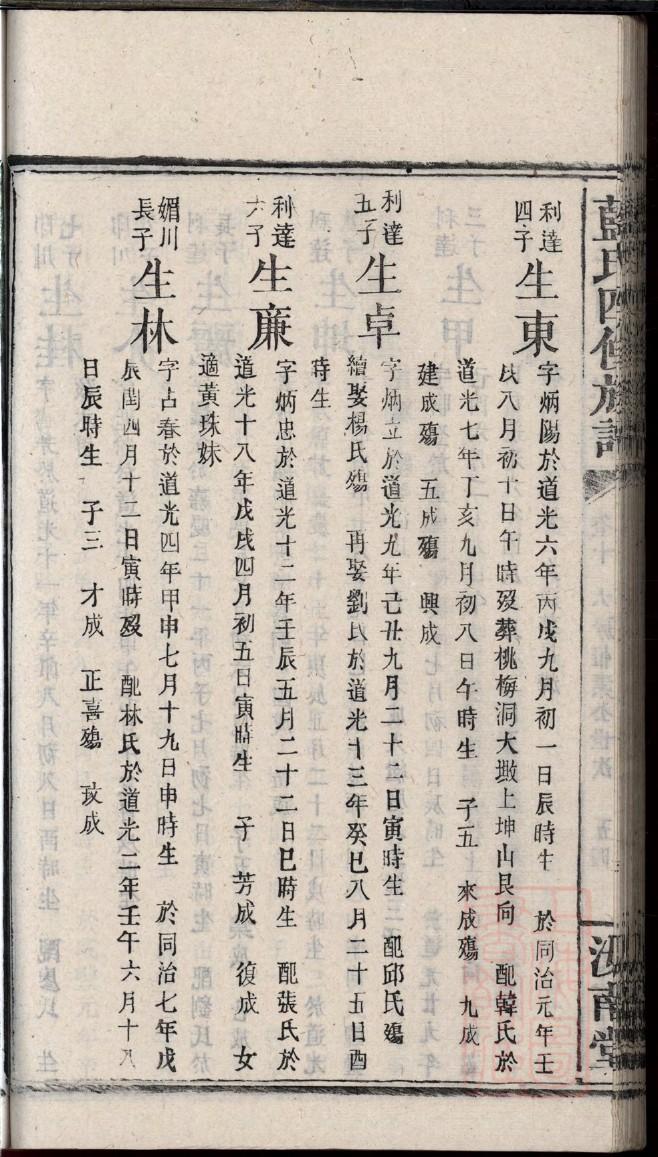 藍氏四修族譜
汝南堂
利達
四子
生東
字炳陽於道光六年丙戌九月初一日辰時生 於同治元年壬
戌八月初十日午時歿葬桃梅洞大墩上坤山艮向 配韓氏於
道光七年丁亥九月初八日午時生 子五 來成殤 九成
建成殤 五成殤 興成
利達
五子
生卓
字炳立於道光九年己丑九月二十二日寅時生 配邱氏殤
繪娶楊氏殤 再娶劉氏於道光十三年癸巳八月二十五日酉
時生
利達
六子
生廉
字炳忠於道光十二年壬辰五月二十二日巳時生 配張氏於
道光十八年戊戌四月初五日寅時生 子 芳成 復成 女
適黃珠妹
媚川
長子
生林
字占春於道光四年甲申七月十九日申時生 於同治七年戊
辰閏四月十二日寅時歿 配林氏於道光二年壬午六月十八
日辰時生 子三 才成 正喜殤 玫成